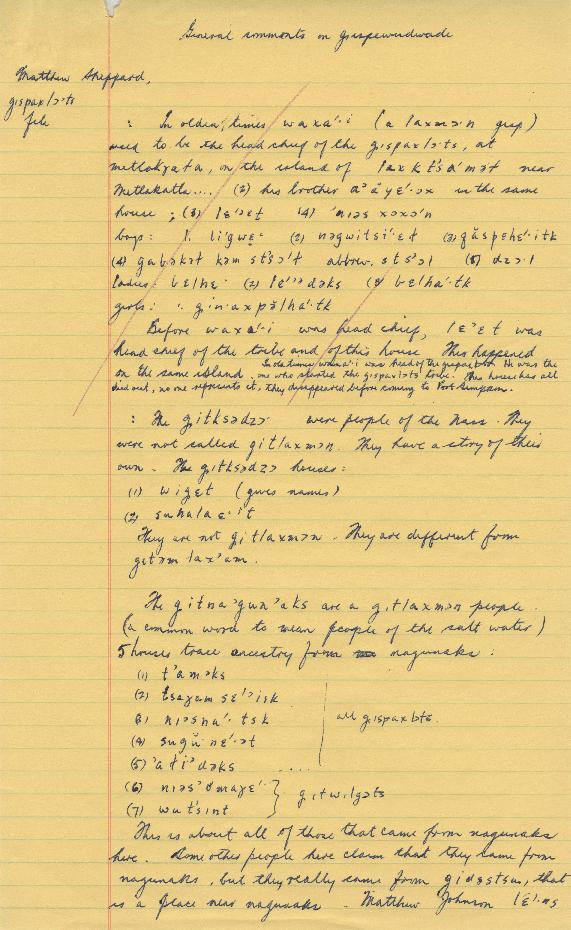 General comments on gispewudwade
Matthew Sheppard,
gispaxlɔ·ts
file
: In olden times waxa'·i (a laxmɔ'n gisp)
used to be the head chief of the gispaxlɔ·ts, at
metlakata, on the island of laxkts'a'mət near
Metlakatla.... (2) his brother in the same
house ; (3) lɛ'ɔɛt (4) 'niəs xɔxɔ'n
boys: 1. li'gwɛ· (2) nəgwitsi'ɛt (3) găspɛhɛ'·itk
(4) gabəkət kəm sts'ɔ'l abbrev. sts'ɔl (5) dzɔ·l
ladies: bɛlhɛ· (2) dəks (3) bɛlha'·tk
girls: · ginaxpălha'·tk
Before waxa'·i was head chief, lɛ'ɛt was
head chief of the tribe and of this house This happened
on the same island. In olden times waxa'·i was head of the gispaxlɔts. He was the
one who started the gispaxlɔts tribe. This house has all
died out, no one represents it, they disappeared before coming to Port Simpson.
: The gitksədzɔ were people of the Nass. They
were not called gitlaxmɔn. They have a story of their
own. The gitksədzɔ houses:
(1) wigɛt (gives names)
(2) suhalaɛ'·it
They are not gitlaxmɔn. They are different from
getəm lax'am.
The gitna'gun'aks are a gitlaxmɔn people.
(a common word to mean people of the salt water)
5 houses trace ancestry from nagunaks:
(1) t'aməks
(2) tsəyəm sɛ'isk
(3) niəsna'·tsk
(4) sugŭnɛ'·ət
all gispaxlɔts.
(5) 'ati'dəks ....
(6) niəs'əmayɛ'·
(7) wuts'int
gitwilgɔts
This is about all of those that came from nagunaks
here. Some other people here claim that they came from
nagunaks, but they really came from gidɛstsu, that
is a place near nagunaks. Matthew Johnson